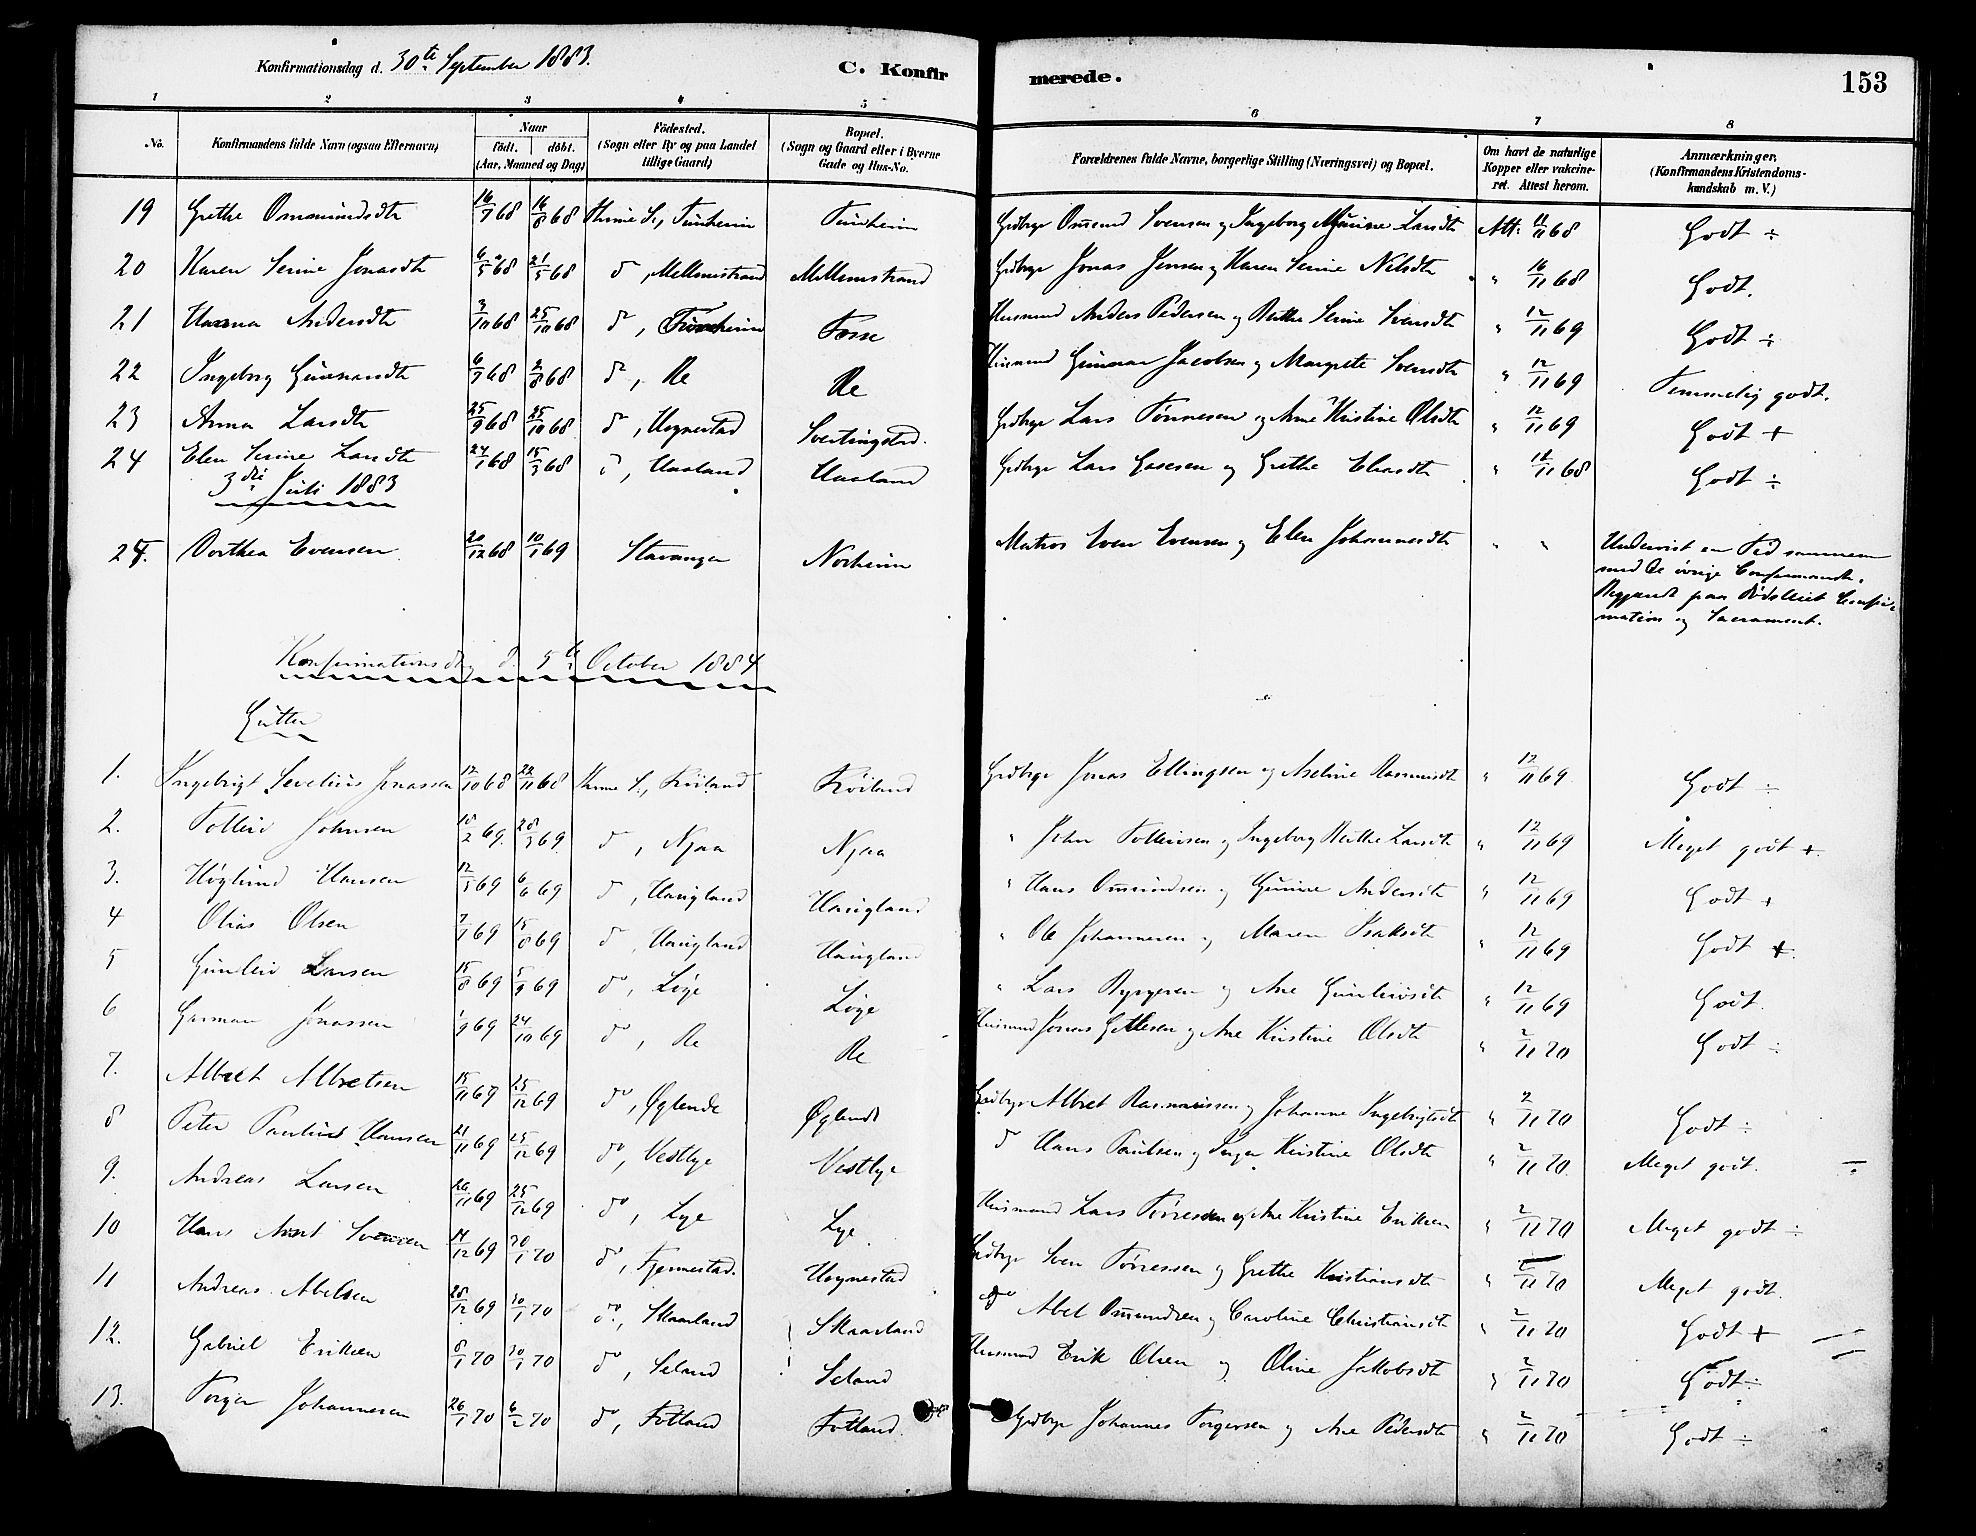 Konfirmationsdag d. 30te September 1883.
C. Konfirmerede.
153
1 2 3 4 5 6 7 8
No.
Konfirmandens fulde Navn (ogsaa Efternavn)
Naar
födt. döbt.
(Aar, Maaned og Dag)
Födested.
(Sogn eller By og paa Landet
tillige Gaard)
Bopæl.
(Sogn og Gaard eller i Byerne
Gade og Hus-No.
Forældrenes fulde Navne, borgerlige Stilling (Næringsvei) og Bopæl.
Om havt de naturlige
Kopper eller vakcine-
ret. Attest herom.
Anmærkninger.
(Konfirmandens Kristendoms-
kundskab m. V.)
19 Grethe Ommundsdtr 16/7 68 16/8 68 Thime S., Tunheim Tunheim Grdbrgr Ommund Svensen og Ingeborg Larsdtr Att: 11/11 68 Godt ÷
20 Karen Serine Jonasdtr 6/5 68 21/5 68 do, Mellemstrand Mellemstrand Grdbrgr Jonas Jensen og Karen Serine Nilsdtr " 16/11 68 Godt.
21 Hanna Andersdtr 3/10 68 25/10 68 do, Tunheim Fosse Husmand Anders Pedersen og Berthe Serine Svensdtr " 12/11 69 Godt ÷
22 Ingeborg Gunnarsdtr 6/7 68 2/8 68 do, Re Re Husmand Gunnar Jacobsen og Margrete Svensdtr " 12/11 69 Temmelig godt.
23 Anna Larsdtr 25/9 68 25/10 68 do, Hognestad Svertingstad. Grdbrgr Lars Tønnesen og Ane Kristine Olsdtr " 12/11 69 Godt +
24 Elen Serine Larsdtr 24/1 68 15/3 68 do, Haaland Haaland Grdbrgr Lars Gasesen og Grethe Eliasdtr " 12/11 68 Godt ÷
3die Juli 1883
25. Dorthea Evensen 20/12 68 10/1 69 Stavanger Norheim Matros Even Evensen og Elen Johannesdtr " " Undervist en Tid sammen
med de øvrige Confirmander.
Begjærede paa Dødsleiet Confir-
mation og Sacrament.
Konfirmationsdag d. 5te October 1884
Gutter
1. Ingebrigt Sevelius Jonassen 12/10 68 22/11 68 Thime S., Kviland Kviland Grdbrgr Jonas Ellingsen og Aseline Rasmusdtr " 12/11 69 Godt ÷
2. Tolleiv Johnsen 18/2 69. 28/3 69. do, Njaa Njaa " John Tolleivsen og Ingeborg Berthe Larsdtr " 12/11 69 Meget godt +.
3. Høglund Hansen 12/5 69 6/6 69 do, Haugland Haugland " Hans Ommundsen og Gurine Andersdtr " 12/11 69 Godt +
4 Olias Olsen 7/7 69 15/8 69 do, Haugland Haugland " Ole Johannesen og Maren Isaksdtr " 12/11 69 Godt +.
5 Gunleiv Larsen 15/8 69 5/9 69 do, Lye Lye " Lars Byrgesen og Ane Gunleivsdtr " 12/11 69 Godt.
6 Garman Jonassen 1/9 69 24/10 69 do, Re Re Husmand Jonas Gittlesen og Ane Kristine Olsdtr " 2/11 70 Godt ÷
7. Albret Albretsen 15/11 69 25/12 69 do, Øglende Øglende Grdbrgr Albret Rasmussen og Johanne Ingebrigtsdtr " 2/11 70 Godt ÷
8 Peter Paulius Hansen 21/11 69 25/12 69 do, Vestlye Vestlye do Hans Paulsen og Inger Kristine Olsdtr " 2/11 70. Meget godt. ÷
9. Andreas Larsen 26/11 69 25/12 69 do, Lye Lye Husmand Lars Tørresen og Ane Kristine Eriksen " 2/11 70 Meget godt ÷
10 Hans Arnt Svensen 14/12 69 30/1 70 do, Fjermestad. Hognestad Grdbrgr Sven Tørressen og Grethe Kristiansdtr " 2/11 70 Meget godt.
11 Andreas Abelsen 28/12 69 30/1 70 do., Skaarland Skaarland do Abel Ommundsen og Caroline Christiansdtr " 2/11 70 Godt +
12. Gabriel Eriksen 8/1 70 30/1 70 do, Seland Seland Husmand Erik Olsen og Oline Jakobsdtr " 2/11 70 Godt ÷
13. Torger Johannesen 26/1 70 6/2 70 do, Fotland Fotland. Grdbrgr Johannes Torgersen og Ane Pedersdtr " 2/11 70 Godt ÷